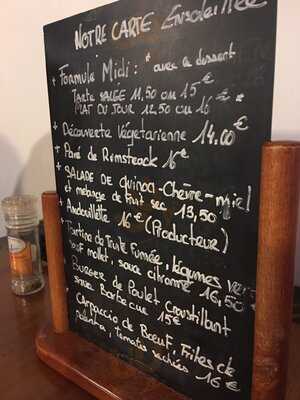 NOTRE CARTE Ensoleillée
+ Formule Midi : * avec le dessert
TARTE SALÉE 11,50 ou 15 €
PLAT DU JOUR 12,50 ou 16 € *
+ Découverte Végétarienne 14.00€
+ Pavé de Rumsteack 16€
+ SALADE DE Quinoa-Chèvre-miel
et mélange de fruit sec 13,50
+ Andouillette 16€ (Producteur)
+ Tartine de Truite Fumée, légumes
oeuf mollet, sauce citronné 16,50
+ Burger de Poulet Croustillant
sauce Barbecue 15€
+ Carpaccio de Boeuf, Frites de
Polenta, tomates séchées 16€